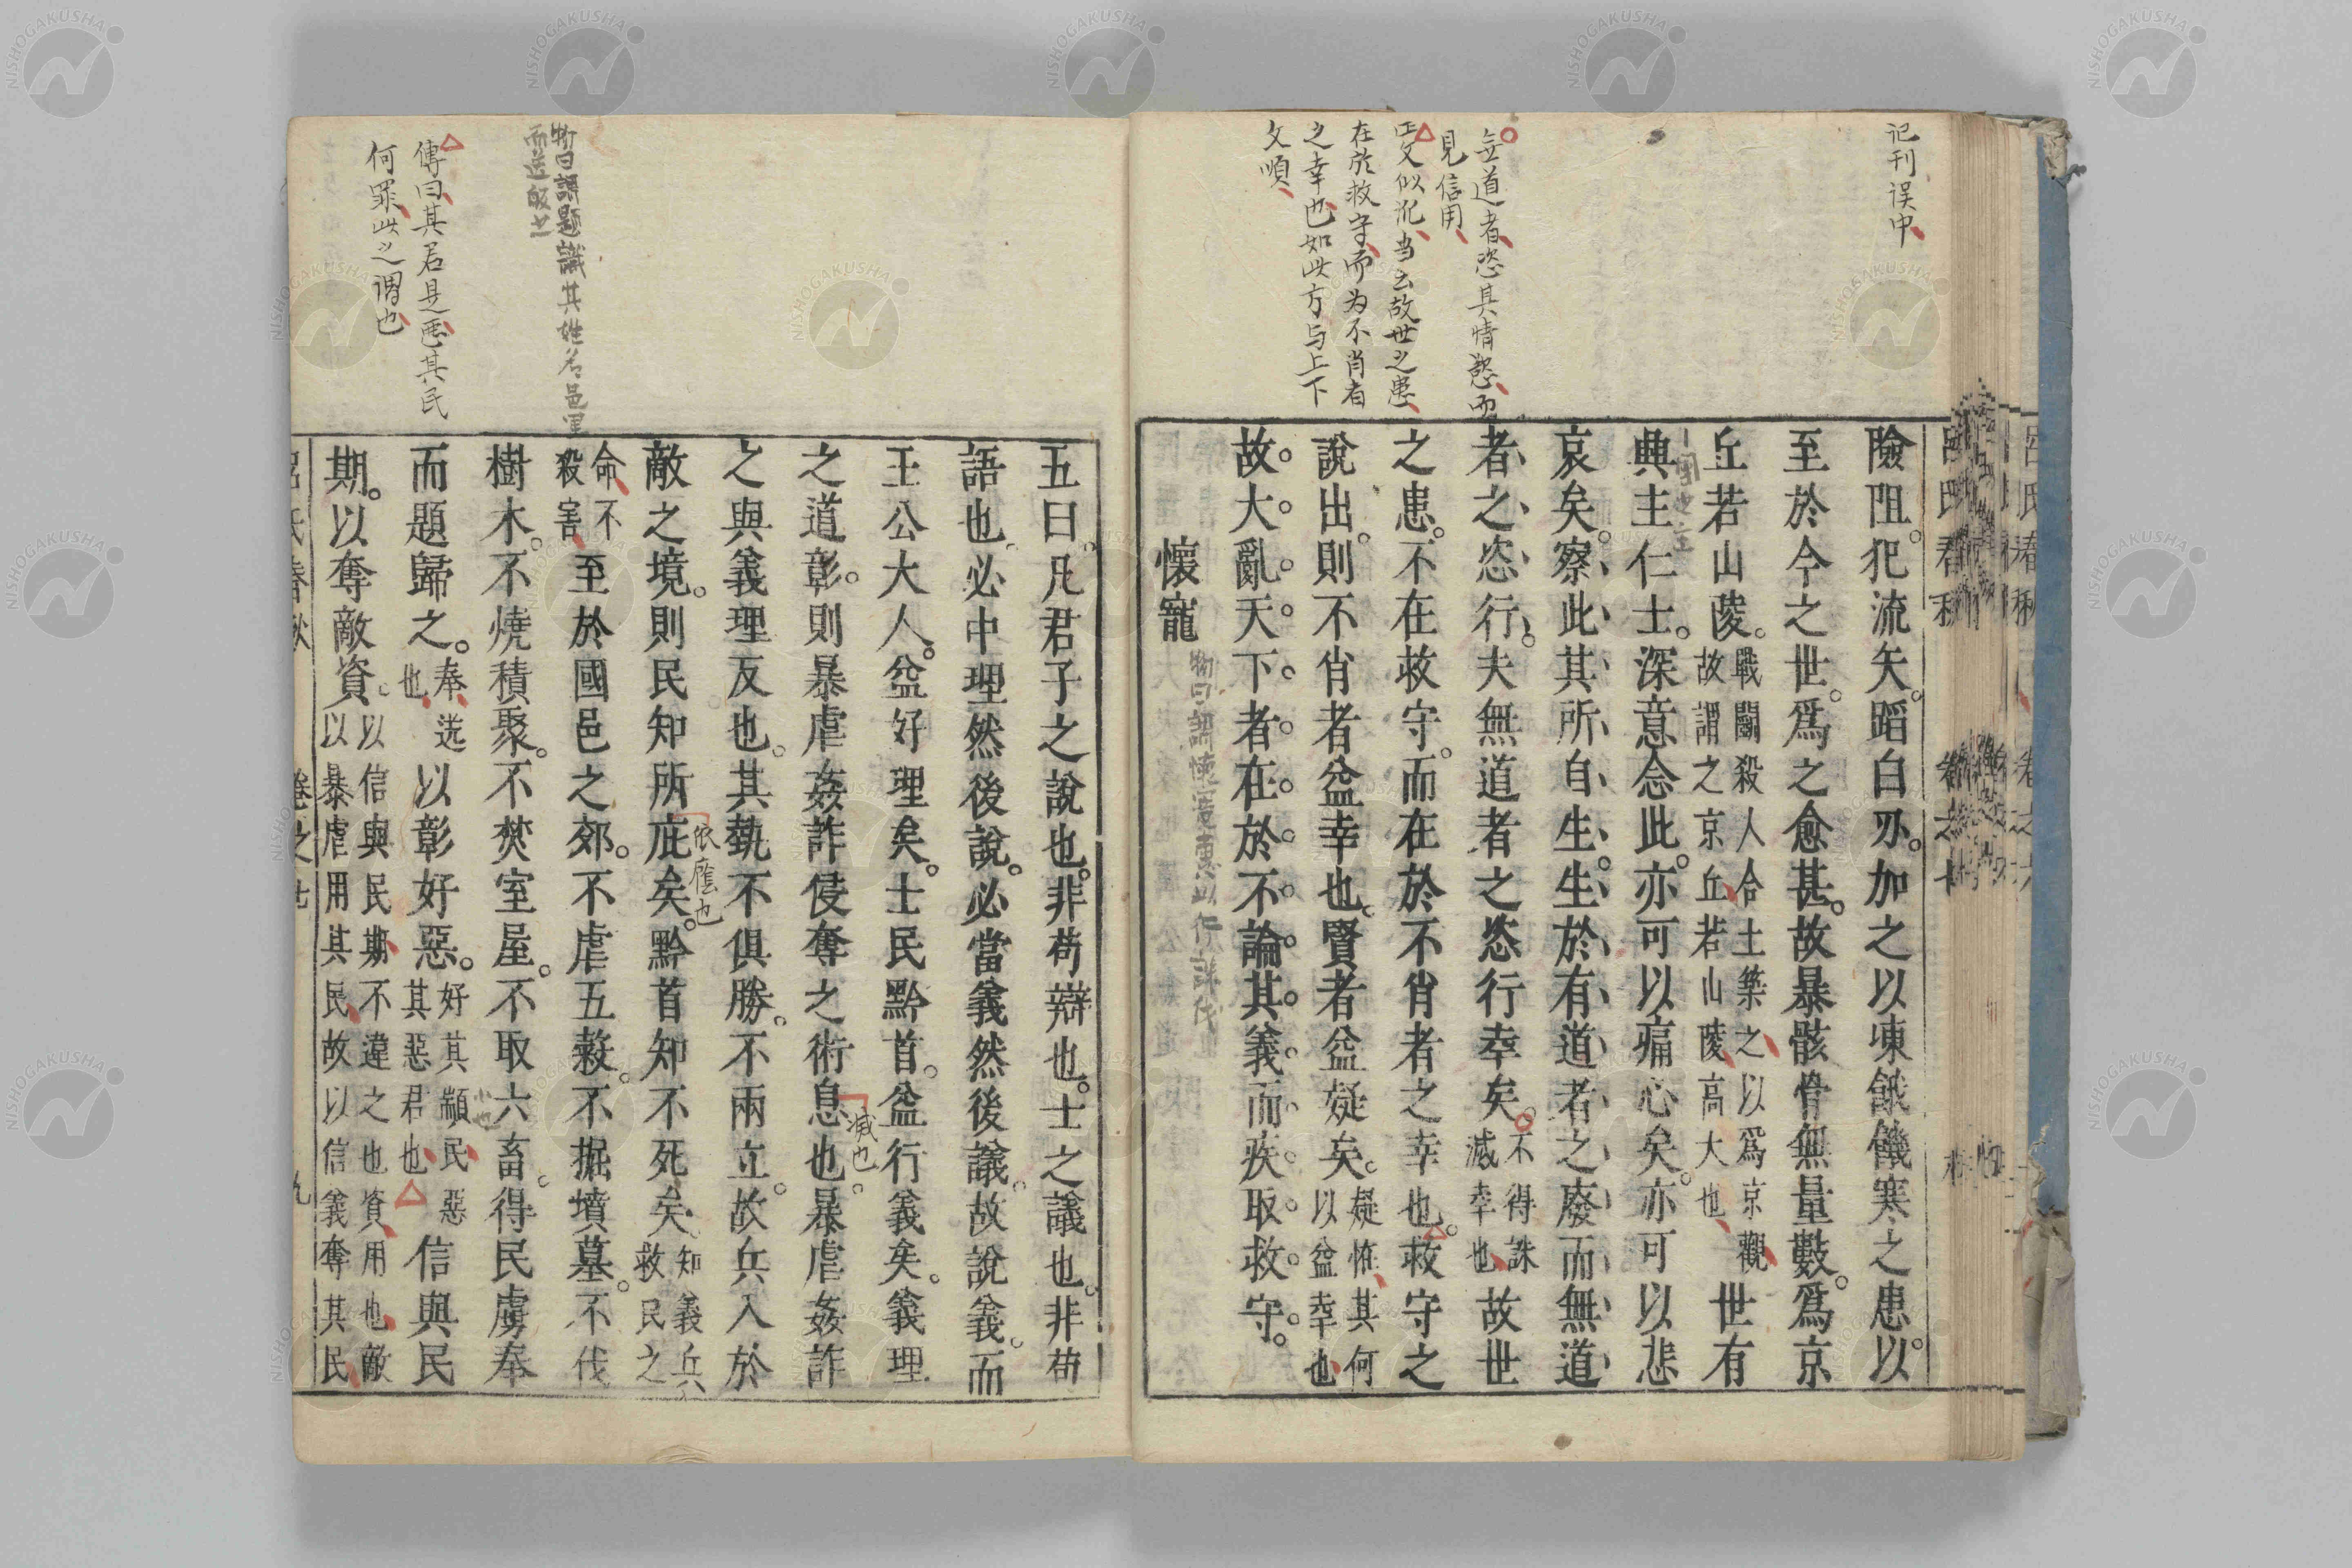 记刊误中
無道者恣其情慾而
見信用
正文似訛当云故世之患
在於救守而为不肖者
之幸也如此方与上下
文順
險阻犯流矢蹈白刃加之以凍餓饑寒之患以
至於今之世爲之愈甚故暴骸骨無量數爲京
丘若山陵戰鬭殺人合土築之以爲京觀
故謂之京丘若山陵高大也世有
興主仁士深意念此亦可以痛心矣亦可以悲
哀矣察此其所自生生於有道者之廢而無道
者之恣行夫無道者之恣行幸矣不得誅
滅幸也故世
之患不在救守而在於不肖者之幸也救守之
說出則不肖者益幸也賢者益疑矣疑怪其何
以益幸也
故大亂天下者在於不論其義而疾取救守
懷寵
五曰凡君子之說也非苟辯也士之議也非苟
語也必中理然後說必當義然後議故說義而
王公大人益好理矣士民黔首益行義矣義理
之道彰則暴虐姦詐侵奪之術息也暴虐姦詐
減也
之與義理反也其埶不俱勝不兩立故兵入於
敵之境則民知所庇矣黔首知不死矣知義兵
救民之
依廕也
命不
殺害至於國邑之郊不虐五穀不掘墳墓不伐
樹木不燒積聚不焚室屋不取六畜得民虜奉
而題歸之奉送
也以彰好惡好其顓民惡
其惡君也信與民
期以奪敵資以信與民期不違之也資用也敵
以暴虐用其民故以信義奪其民
物曰謂題識其姓名邑里
傳曰其君是惡其民
何罪此之謂也
呂氏春秋
卷之七
九
NISHOGAKUSHA